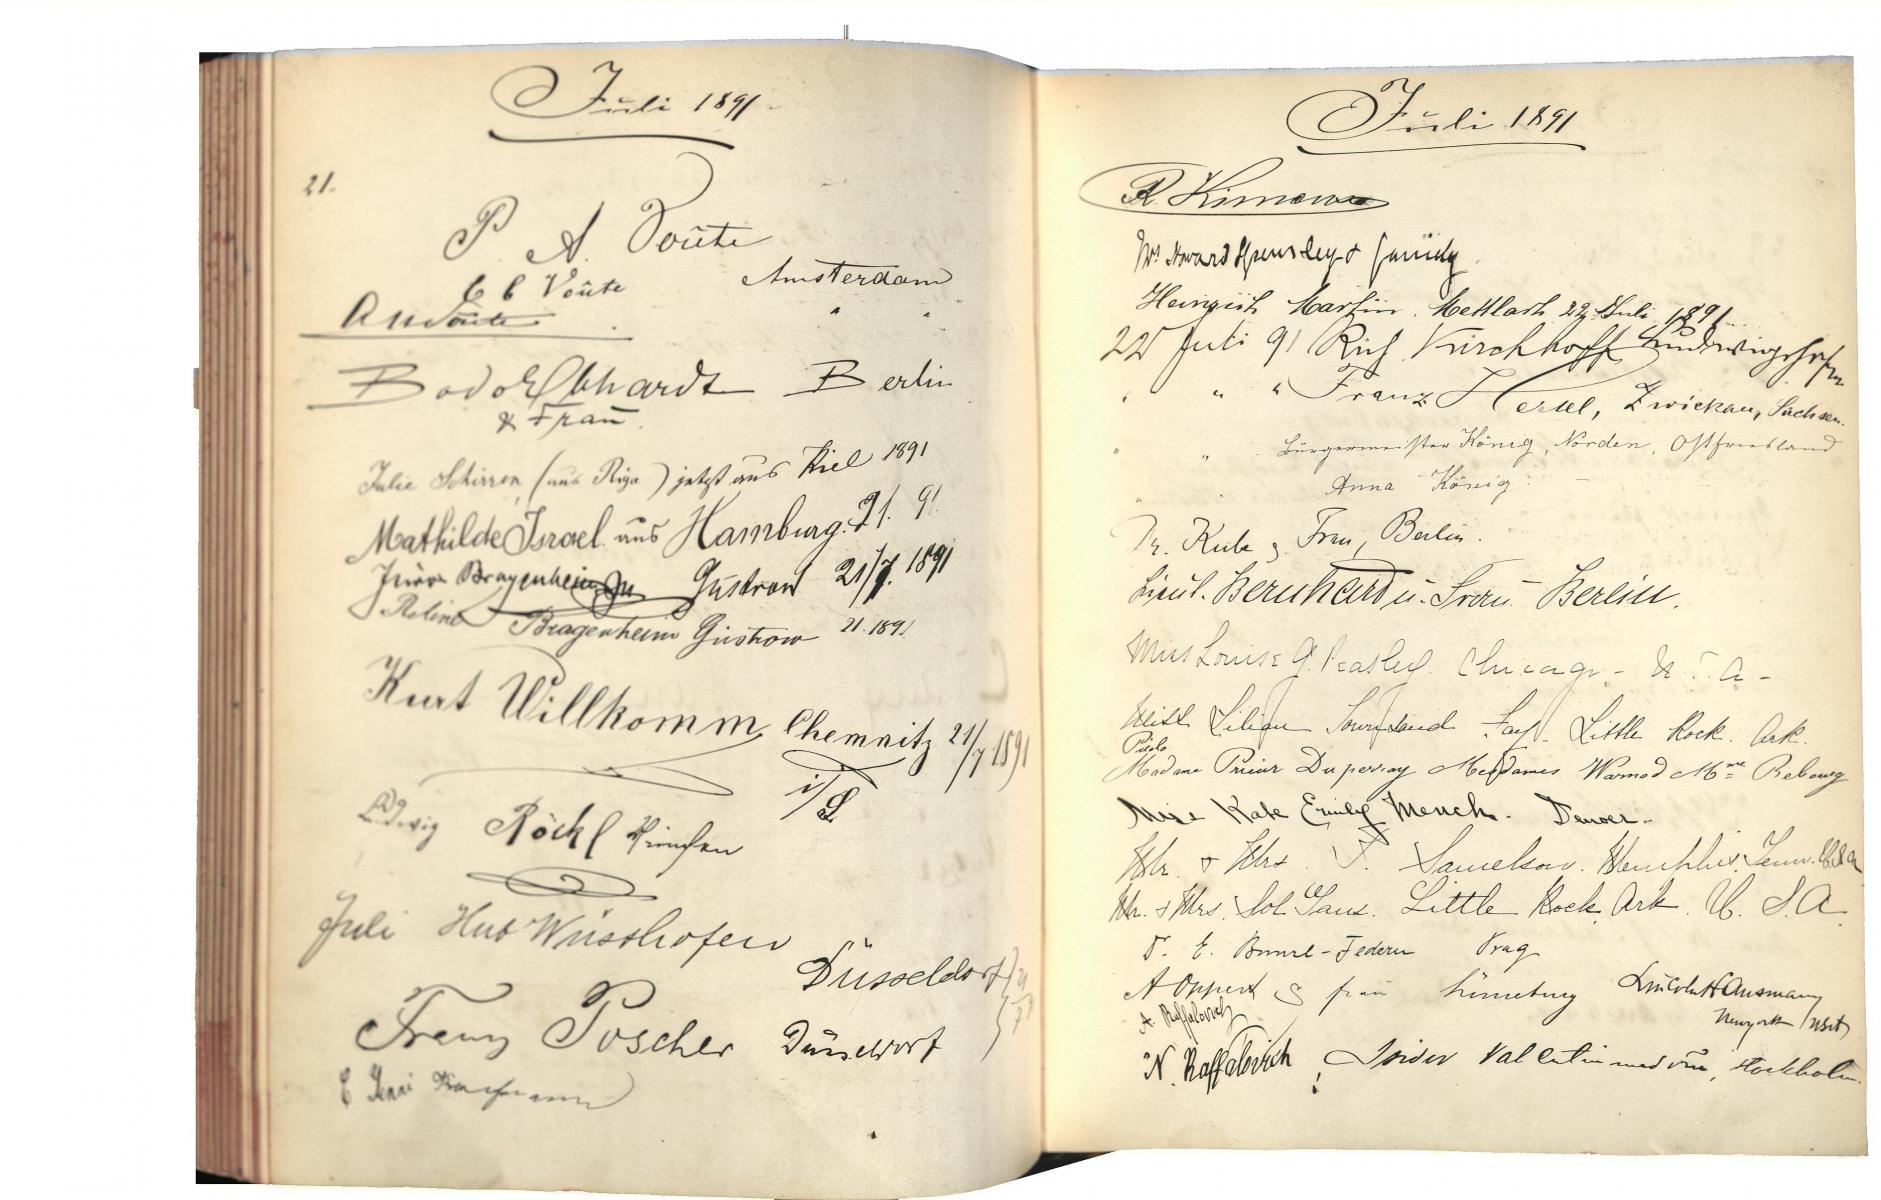 Juli 1891
21.
P. A. Voûte
C C Voûte Amsterdam
A Voûte " "
Bodo Ebhardt Berlin
& Frau.
Julie Schirren, (aus Riga) jetzt aus Kiel 1891
Mathilde Israel aus Hamburg. 21. 91.
Bragenheim Güstrow 21/7. 1891
Bragenheim Güstrow 21. 1891
Kurt Willkomm, Chemnitz 21/7 1891
i/S.
Ludwig Röckl München
Juli Hub Wüsthofen
Düsseldorf 21/7
Franz Poscher Düsseldorf
Juli 1891
R.
Mrs Howard Spensley & family
Heinrich Martin. Mettlach 22. Juli 1891.
22 Juli 91 Rich. Kirchhoff Ludwigshafen
" " " Franz Hertel, Zwickau, Sachsen.
" " Bürgermeister König, Norden, Ostfriesland
" Anna König
Dr. Kube & Frau, Berlin.
Lieut. Bernhard u. Frau Berlin.
Miss Louise G. Peasley. Chicago - U.S.A -
Miss Lilian Fay. Little Rock. Ark.
Madame Prieur Duperray Mesdames Warmod Mme Rebourg
Miss Kate Emily Mench. Denver.
Mr. & Mrs. Samelson. Memphis, Tenn. USA
Mr. & Mrs. Sol Gans. Little Rock, Ark. U. S. A
Prag
A Oppert & frau Lüneburg Lincoln Hausmann
A. Raffalovich New York USA
N. Raffalovich Isidor Valentin med fru, Stockholm.